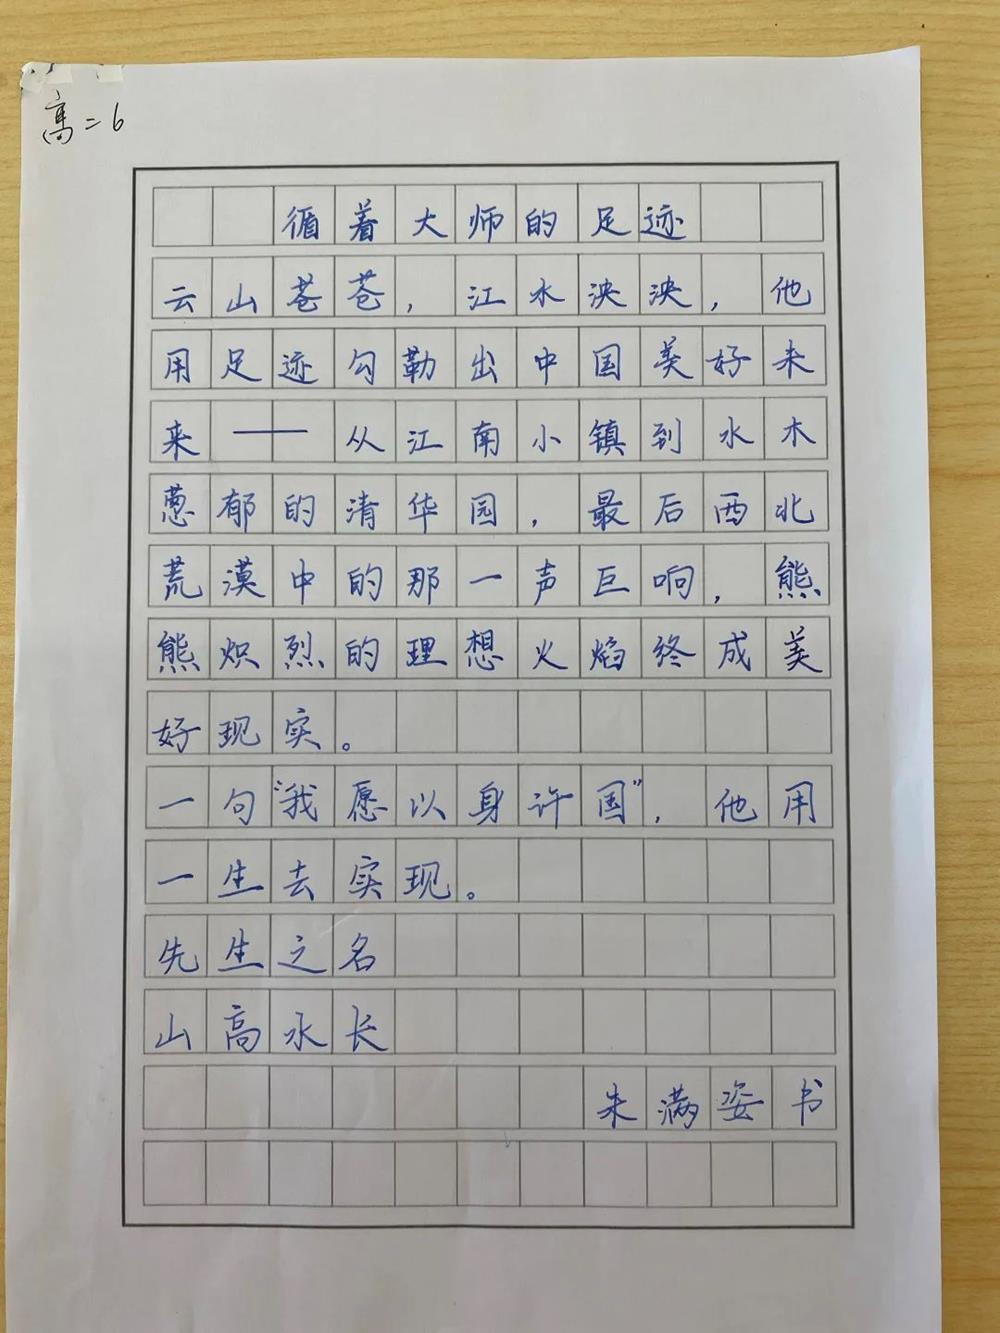 高二6
循着大师的足迹
云山苍苍，江水泱泱，他
用足迹勾勒出中国美好未
来——从江南小镇到水木
葱郁的清华园，最后西北
荒漠中的那一声巨响，熊
熊炽烈的理想火焰终成美
好现实。
一句“我愿以身许国”，他用
一生去实现。
先生之名
山高水长
朱满姿书